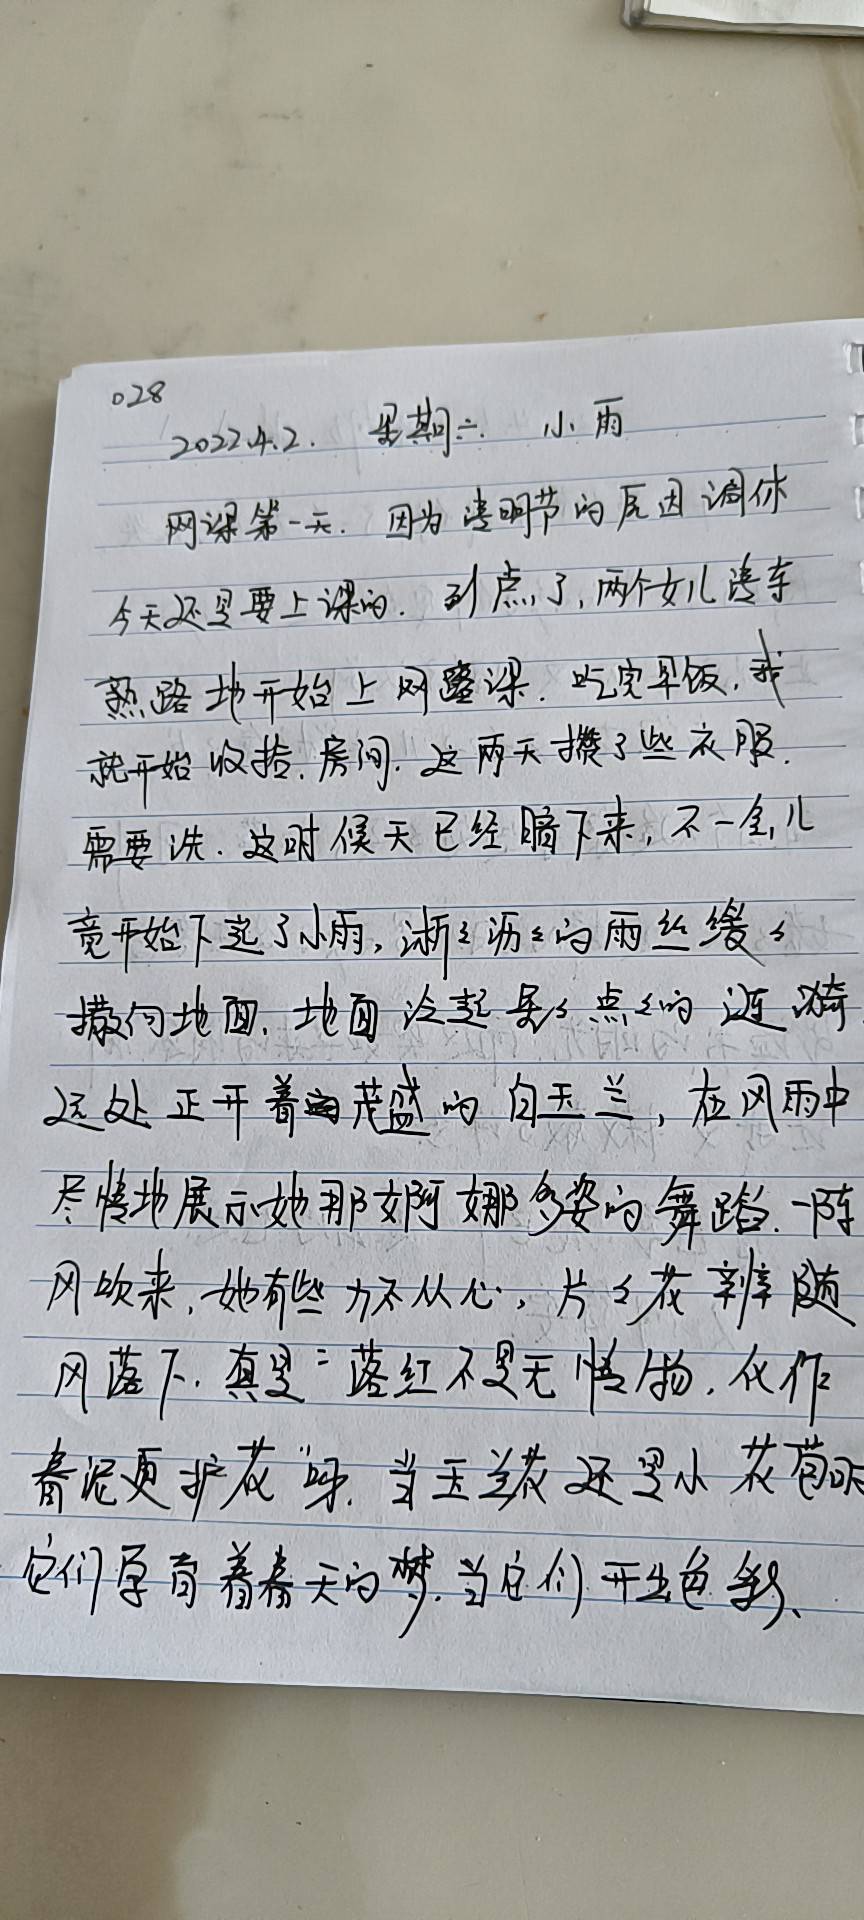 028
2022.4.2. 星期六. 小雨
网课第一天. 因为清明节的原因调休
今天还是要上课的. 到点了, 两个女儿清车
熟路地开始上网课. 吃完早饭, 我
就开始收拾. 房间. 这两天攒了些衣服.
需要洗. 这时候天已经暗下来, 不一会儿
竟开始下起了小雨, 淅々沥々的雨丝缓々
撒向地面. 地面泛起星々点々的涟漪
远处正开着茂盛的白玉兰, 在风雨中
尽情地展示她那婀娜多姿的舞蹈. 一阵
风吹来, 她有些力不从心, 片々花辨随
风落下. 真是"落红不是无情物, 化作
春泥更护花"呀. 当玉兰花还是小花苞时
它们孕育着春天的梦. 当它们开出色彩、